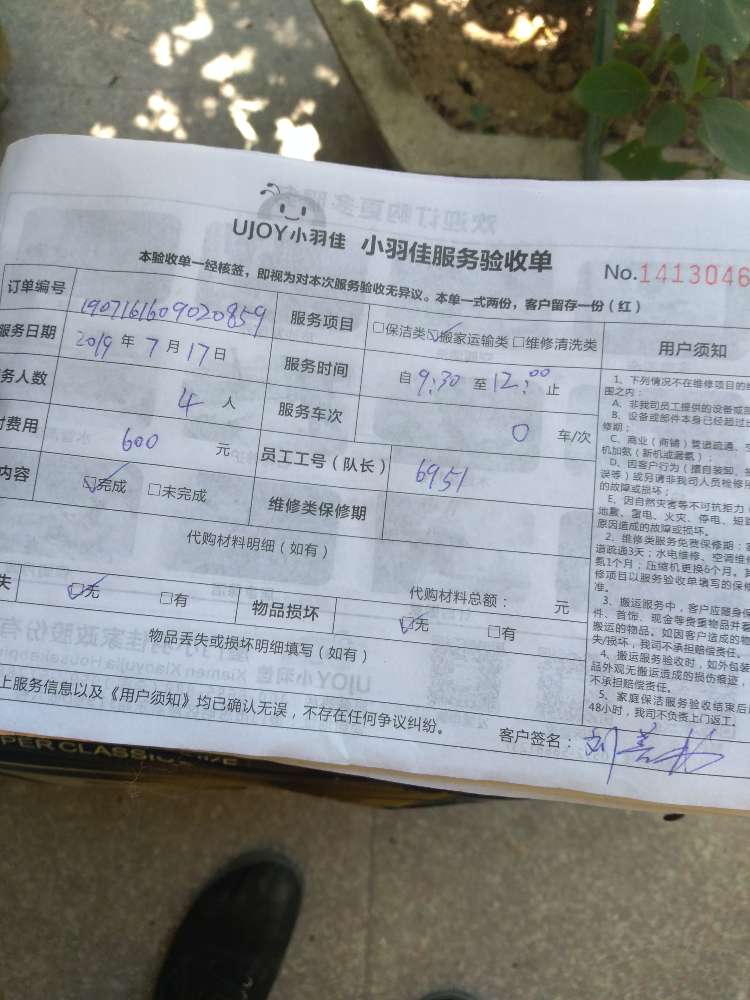 UJOY小羽佳 小羽佳服务验收单
No.1413046
本验收单一经核签,即视为对本次服务验收无异议。本单一式两份,客户留存一份(红)
订单编号 1907161609020859 服务项目 □保洁类☑搬家运输类□维修清洗类
服务日期 2019年7月17日 服务时间 自9:30至12:00止
务人数 4人 服务车次 0车/次
付费用 600元 员工工号(队长) 6951
内容 ☑完成 □未完成 维修类保修期
代购材料明细(如有)
代购材料总额: 元
失 ☑无 □有 物品损坏 ☑无 □有
物品丢失或损坏明细填写(如有)
上服务信息以及《用户须知》均已确认无误,不存在任何争议纠纷。
客户签名:刘
用户须知
1、下列情况不在维修项目的
围之内:
A、非我司员工提供的设备或
B、设备或部件本身已经超过
修期;
C、商业(商铺)管道疏通、
机加氨(新机或漏氨);
D、因客户行为(擅自装卸、
误等)或另请非我司人员检修
的故障或损坏;
E、因自然灾害等不可抗拒力
地震、雷电、火灾、停电、短
原因造成的故障或损坏。
2、维修类服务免费保修期:
道疏通3天;水电维修、空调维
氨1个月;压缩机更换6个月。
修项目以服务验收单填写的保
准。
3、搬运服务中,客户应随身
件、首饰、现金等贵重物品并
搬运的物品。如因客户造成的
失/损坏,我司不承担赔偿责任。
4、搬运服务验收时,如外包装
品外观无搬运造成的损伤痕迹,
不承担赔偿责任。
5、家庭保洁服务验收结束后
48小时,我司不负责上门返工。
PER CLASSIC